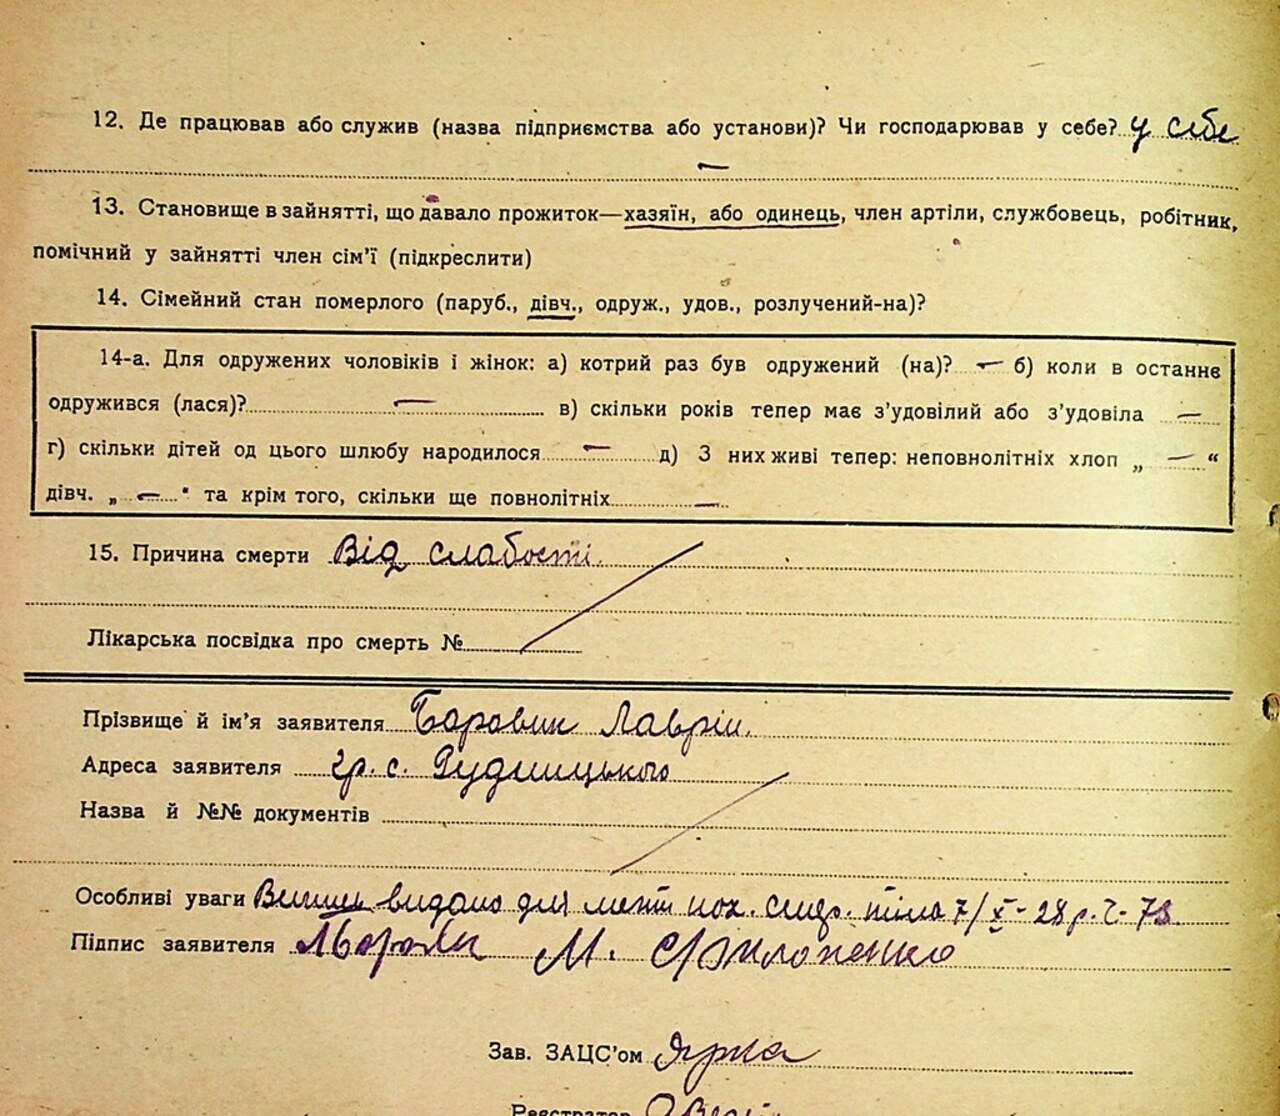 12. Де працював або служив (назва підприємства або установи)? Чи господарював у себе? у себе
—
13. Становище в зайнятті, що давало прожиток—хазяїн, або одинець, член артіли, службовець, робітник,
помічний у зайнятті член сім'ї (підкреслити)
14. Сімейний стан померлого (паруб., дівч., одруж., удов., розлучений-на)?
14-а. Для одружених чоловіків і жінок: а) котрий раз був одружений (на)? — б) коли в останнє
одружився (лася)? — в) скільки років тепер має з'удовілий або з'удовіла —
г) скільки дітей од цього шлюбу народилося — д) З них живі тепер: неповнолітніх хлоп „ — “
дівч. „ — " та крім того, скільки ще повнолітніх —
15. Причина смерти Від слабости.
Лікарська посвідка про смерть №
Прізвище й ім'я заявителя Боровик Лаврін.
Адреса заявителя гр. с. Рудницького
Назва й №№ документів
Особливі уваги видано для 7/X-28 р. ч. 78.
Підпис заявителя М.
Зав. ЗАЦС'ом
Реєстратор